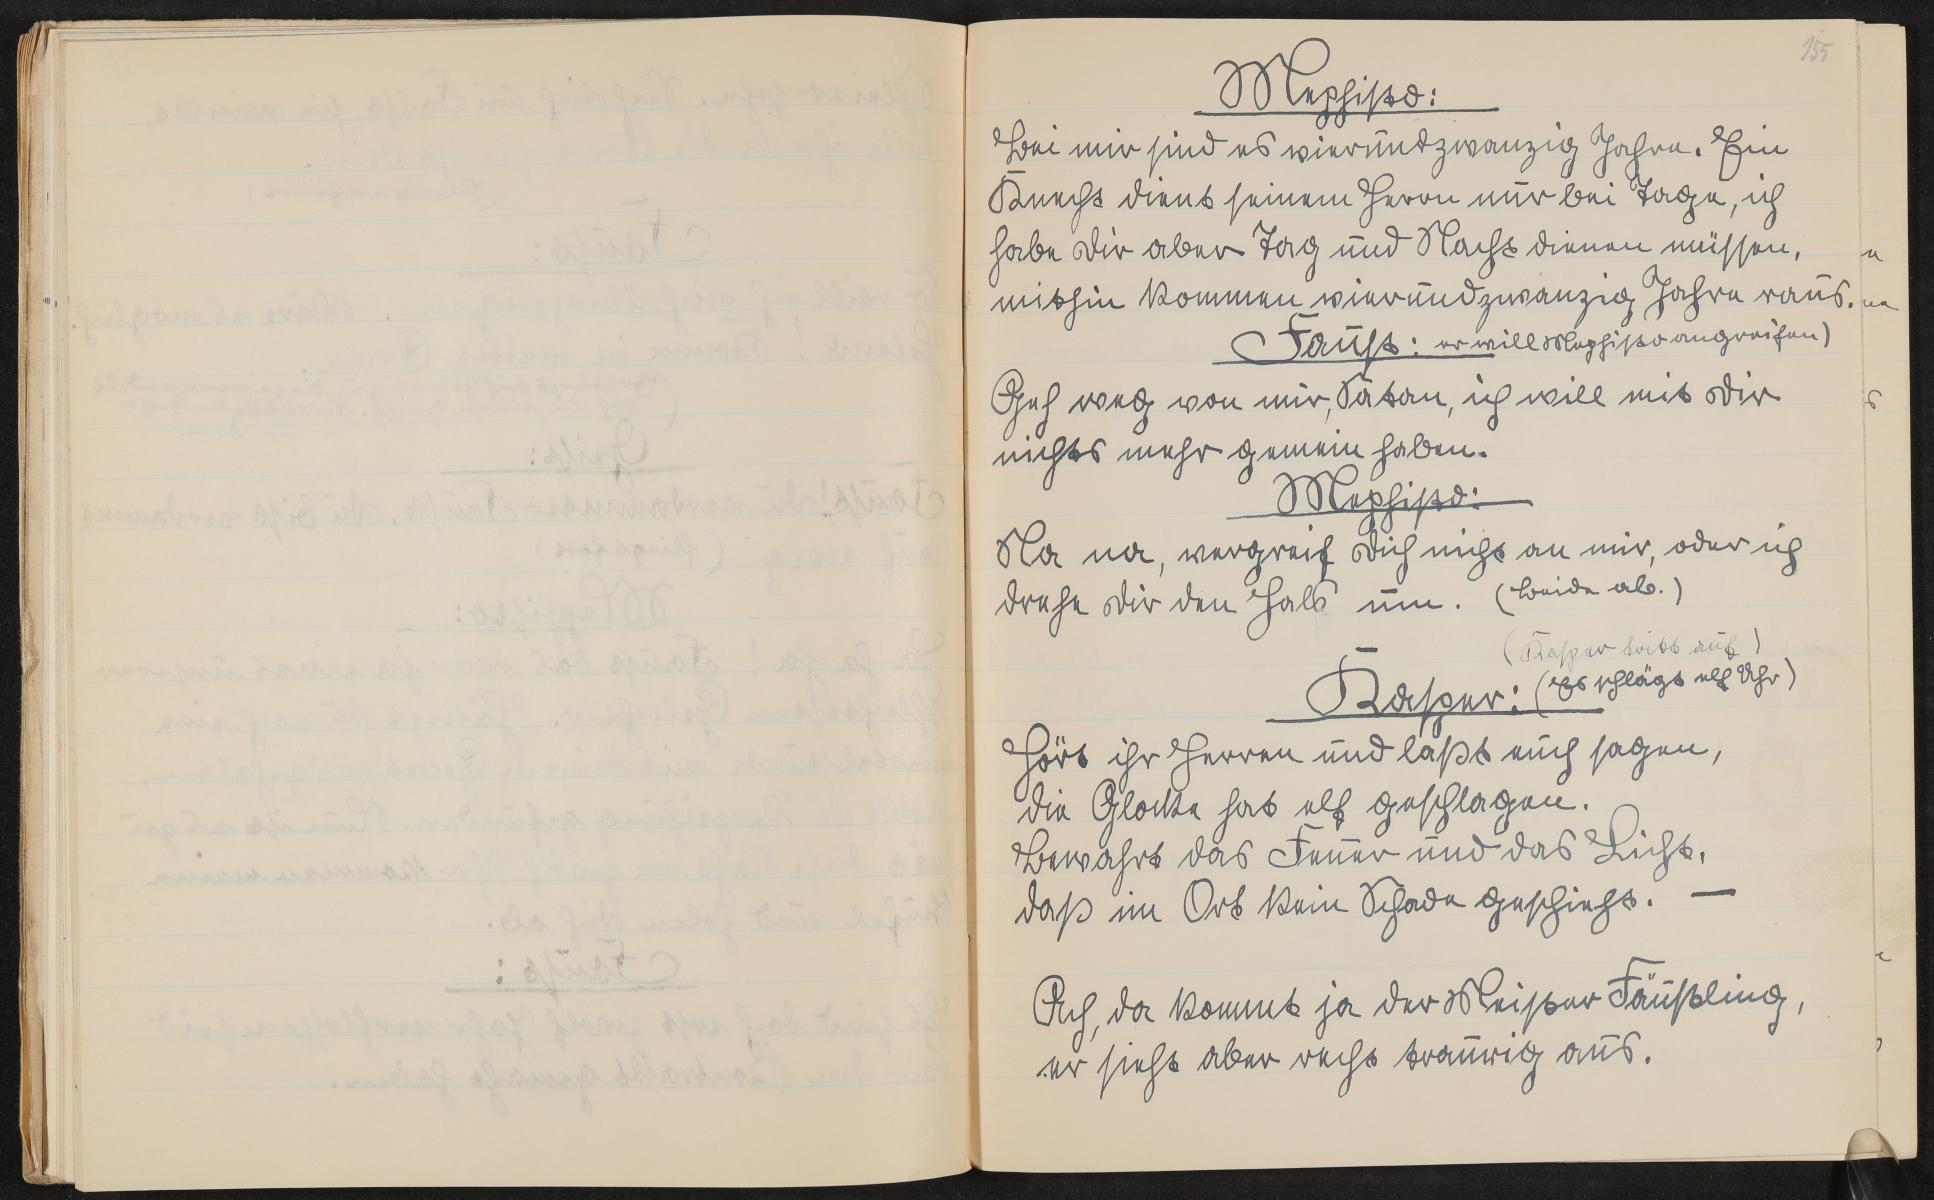 155
Mephisto:
Bei mir sind es vierundzwanzig Jahre. Ein
Knecht dient seinem Herrn nur bei Tage, ich
habe Dir aber Tag und Nacht dienen müssen,
mithin kommen vierundzwanzig Jahre raus.
Faust: er will Mephisto angreifen)
Geh weg von mir, Satan, ich will mit Dir
nichts mehr gemein haben.
Mephisto:
Na na, vergreif Dich nicht an mir, oder ich
drehe Dir den Hals um. (Beide ab.)
(Kasper tritt auf)
Kasper: (Es schlägt elf Uhr)
Hört ihr Herren und laßt euch sagen,
die Glocke hat elf geschlagen.
Bewahrt das Feuer und das Licht,
daß im Ort kein Schade geschieht. —
Ach, da kommt ja der Meister Fäustling,
er sieht aber recht traurig aus.